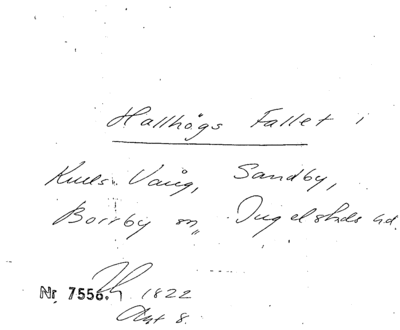 Hallhögs Fallet i
Knuts Vång, Sandby,
Borrby sn, Ingelstads hd.
Nr. 7556. 1822
Akt 8.